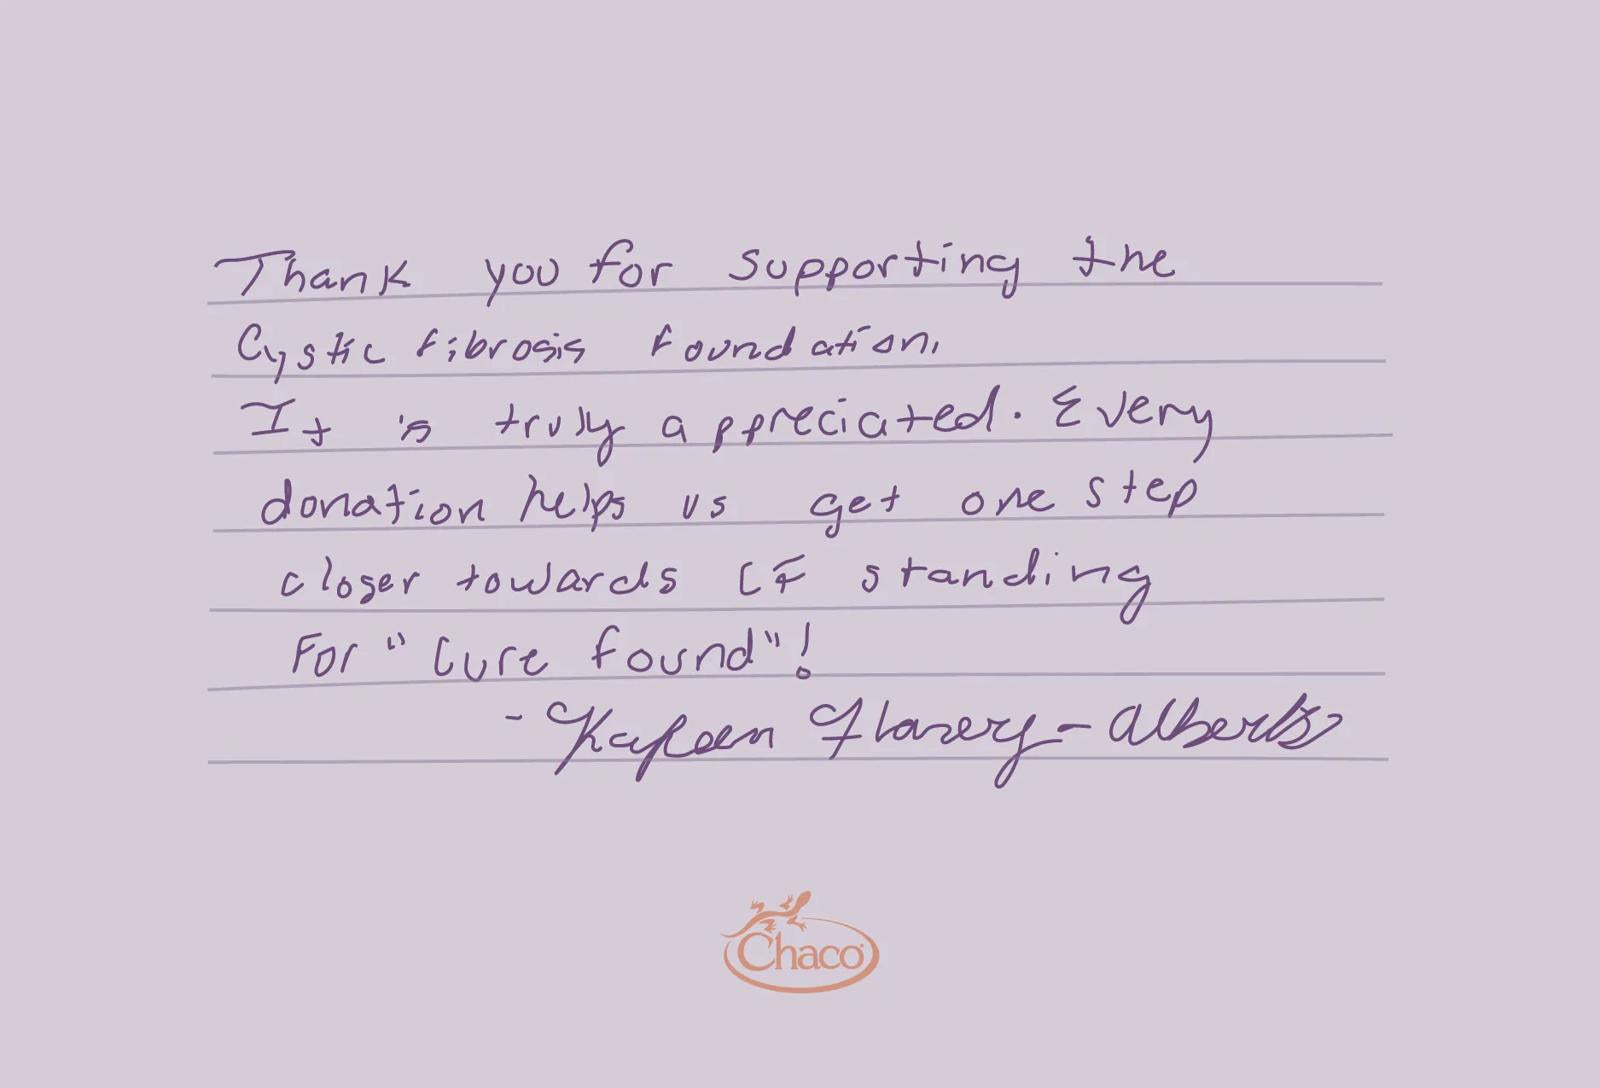 Thank you for supporting the
Cystic fibrosis foundation.
It is truly appreciated. Every
donation helps us get one step
closer towards CF standing
For "Cure found"!
- Kayleen Flanery-Alberts
Chaco